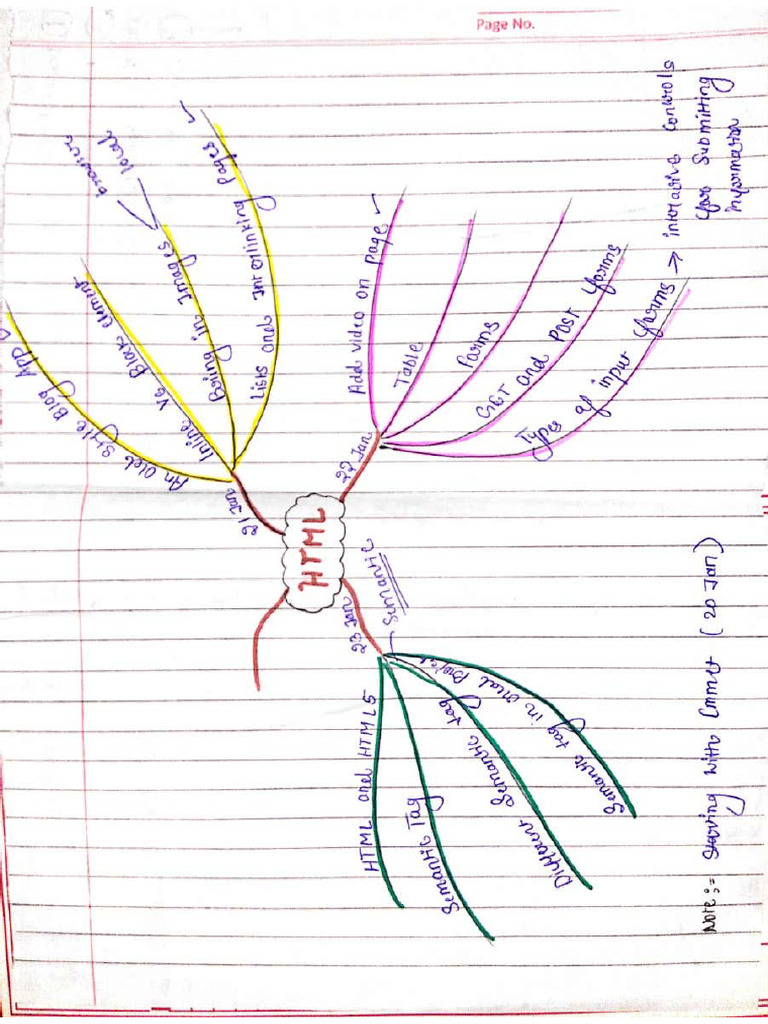 Page No.
HTML
21 Jan
An old Style Blog App
Inline Vs Block element
Being in Images
browser
local
Lists and Interlinking Pages
22 Jan
Add video on page
Table
Forms
GET and POST forms
Types of input forms → interactive controls
for submitting
information
23 Jan
Semantic
HTML and HTML5
Semantic Tag
Different Semantic tag
Semantic tag in real Project
Note:- Starting with Emmet (20 Jan)